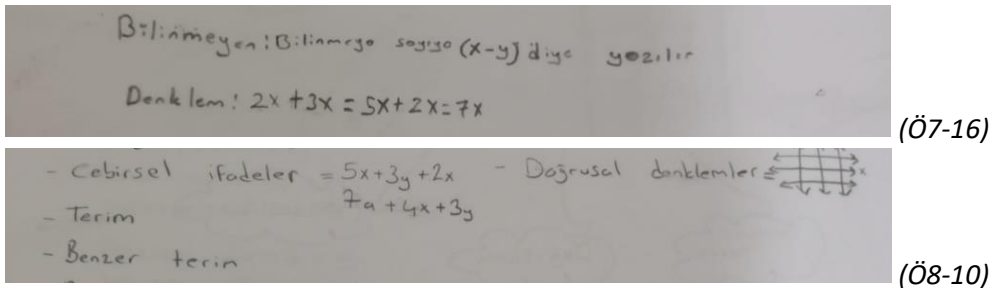 Bilinmeyen: Bilinmeye sayıya (x-y) diye yazılır
Denklem: 2x + 3x = 5x + 2x = 7x
(Ö7-16)
- Cebirsel ifadeler = 5x + 3y + 2x - Doğrusal denklemler = x
7a + 4x + 3y
- Terim
- Benzer terim
(Ö8-10)